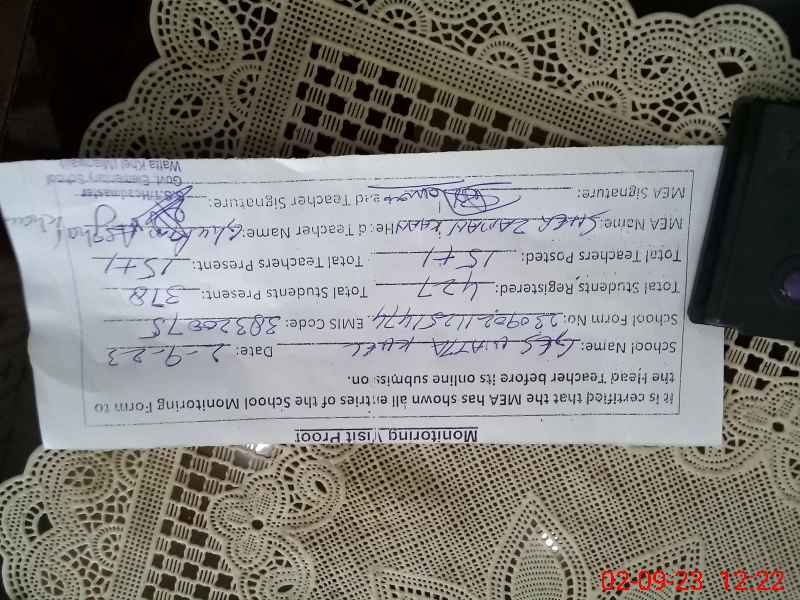 Monitoring Visit Proof
It is certified that the MEA has shown all entries of the School Monitoring Form to
the Head Teacher before its online submission.
School Name: GES WATTA KHEL Date: 2-9-23
School Form No: EMIS Code: 38320075
Total Students Registered: 427 Total Students Present: 378
Total Teachers Posted: 15+1 Total Teachers Present: 15+1
MEA Name: SHER ZAMAN KHAN Head Teacher Name:
MEA Signature: Head Teacher Signature:
S.S.T/Headmaster
Govt. Elementary School
Watta Khel (Mianwali)
02-09-23 12:22